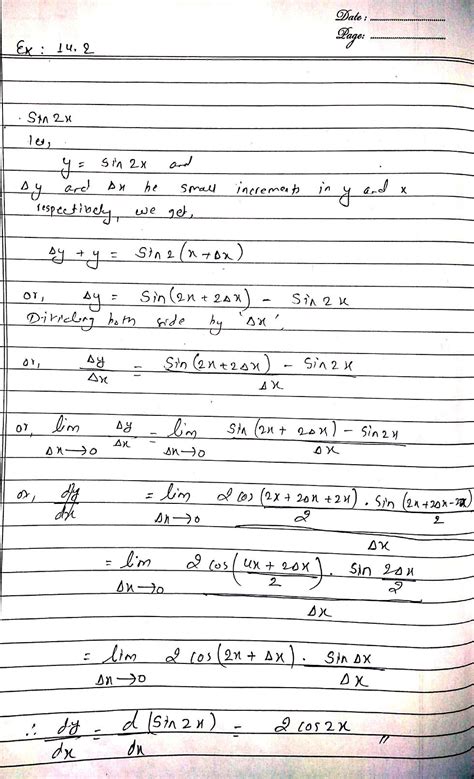 Date :
Page:
Ex : 14.2
. Sin 2x
let,
y = Sin 2x and
Δy and Δx be small increments in y and x
respectively, we get,
Δy + y = Sin 2 (x + Δx)
or, Δy = Sin (2x + 2Δx) - Sin 2x
Dividing both side by 'Δx'.
or, Δy/Δx = Sin (2x + 2Δx) - Sin 2x / Δx
or, lim Δx→0 Δy/Δx = lim Δx→0 Sin (2x + 2Δx) - Sin 2x / Δx
or, dy/dx = lim Δx→0 2 cos (2x + 2Δx + 2x)/2 . Sin (2x + 2Δx - 2x)/2 / Δx
= lim Δx→0 2 cos (4x + 2Δx / 2) . Sin 2Δx/2 / Δx
= lim Δx→0 2 cos (2x + Δx) . Sin Δx / Δx
∴ dy/dx = d (Sin 2x)/dx = 2 cos 2x //